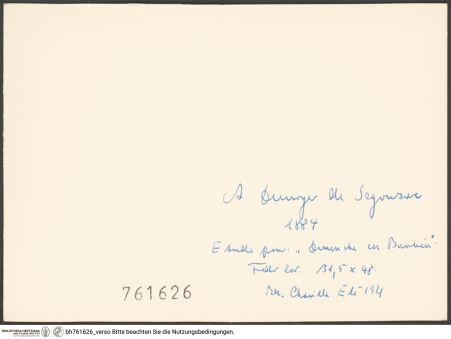 A Dunoyer de Segonzac
1884
Etude pour: „Dimanche en Banlieu"
Feder 31,5 x 48.
761626
BIBLIOTHECA HERTZIANA
bh761626_verso Bitte beachten Sie die Nutzungsbedingungen.